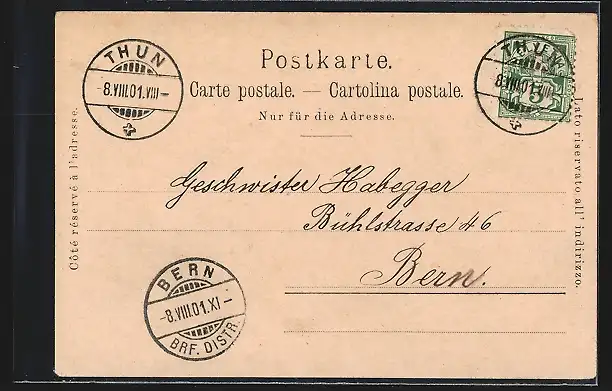 THUN
-8.VIII.01.VIII-
Postkarte.
Carte postale. — Cartolina postale.
Nur für die Adresse.
THUN
-8.VIII.01.VIII-
5
Côté réservé à l'adresse.
Lato riservato all' indirizzo.
Geschwister Habegger
Bühlstrasse 46
Bern.
BERN
-8.VIII.01.XI-
BRF. DISTR.